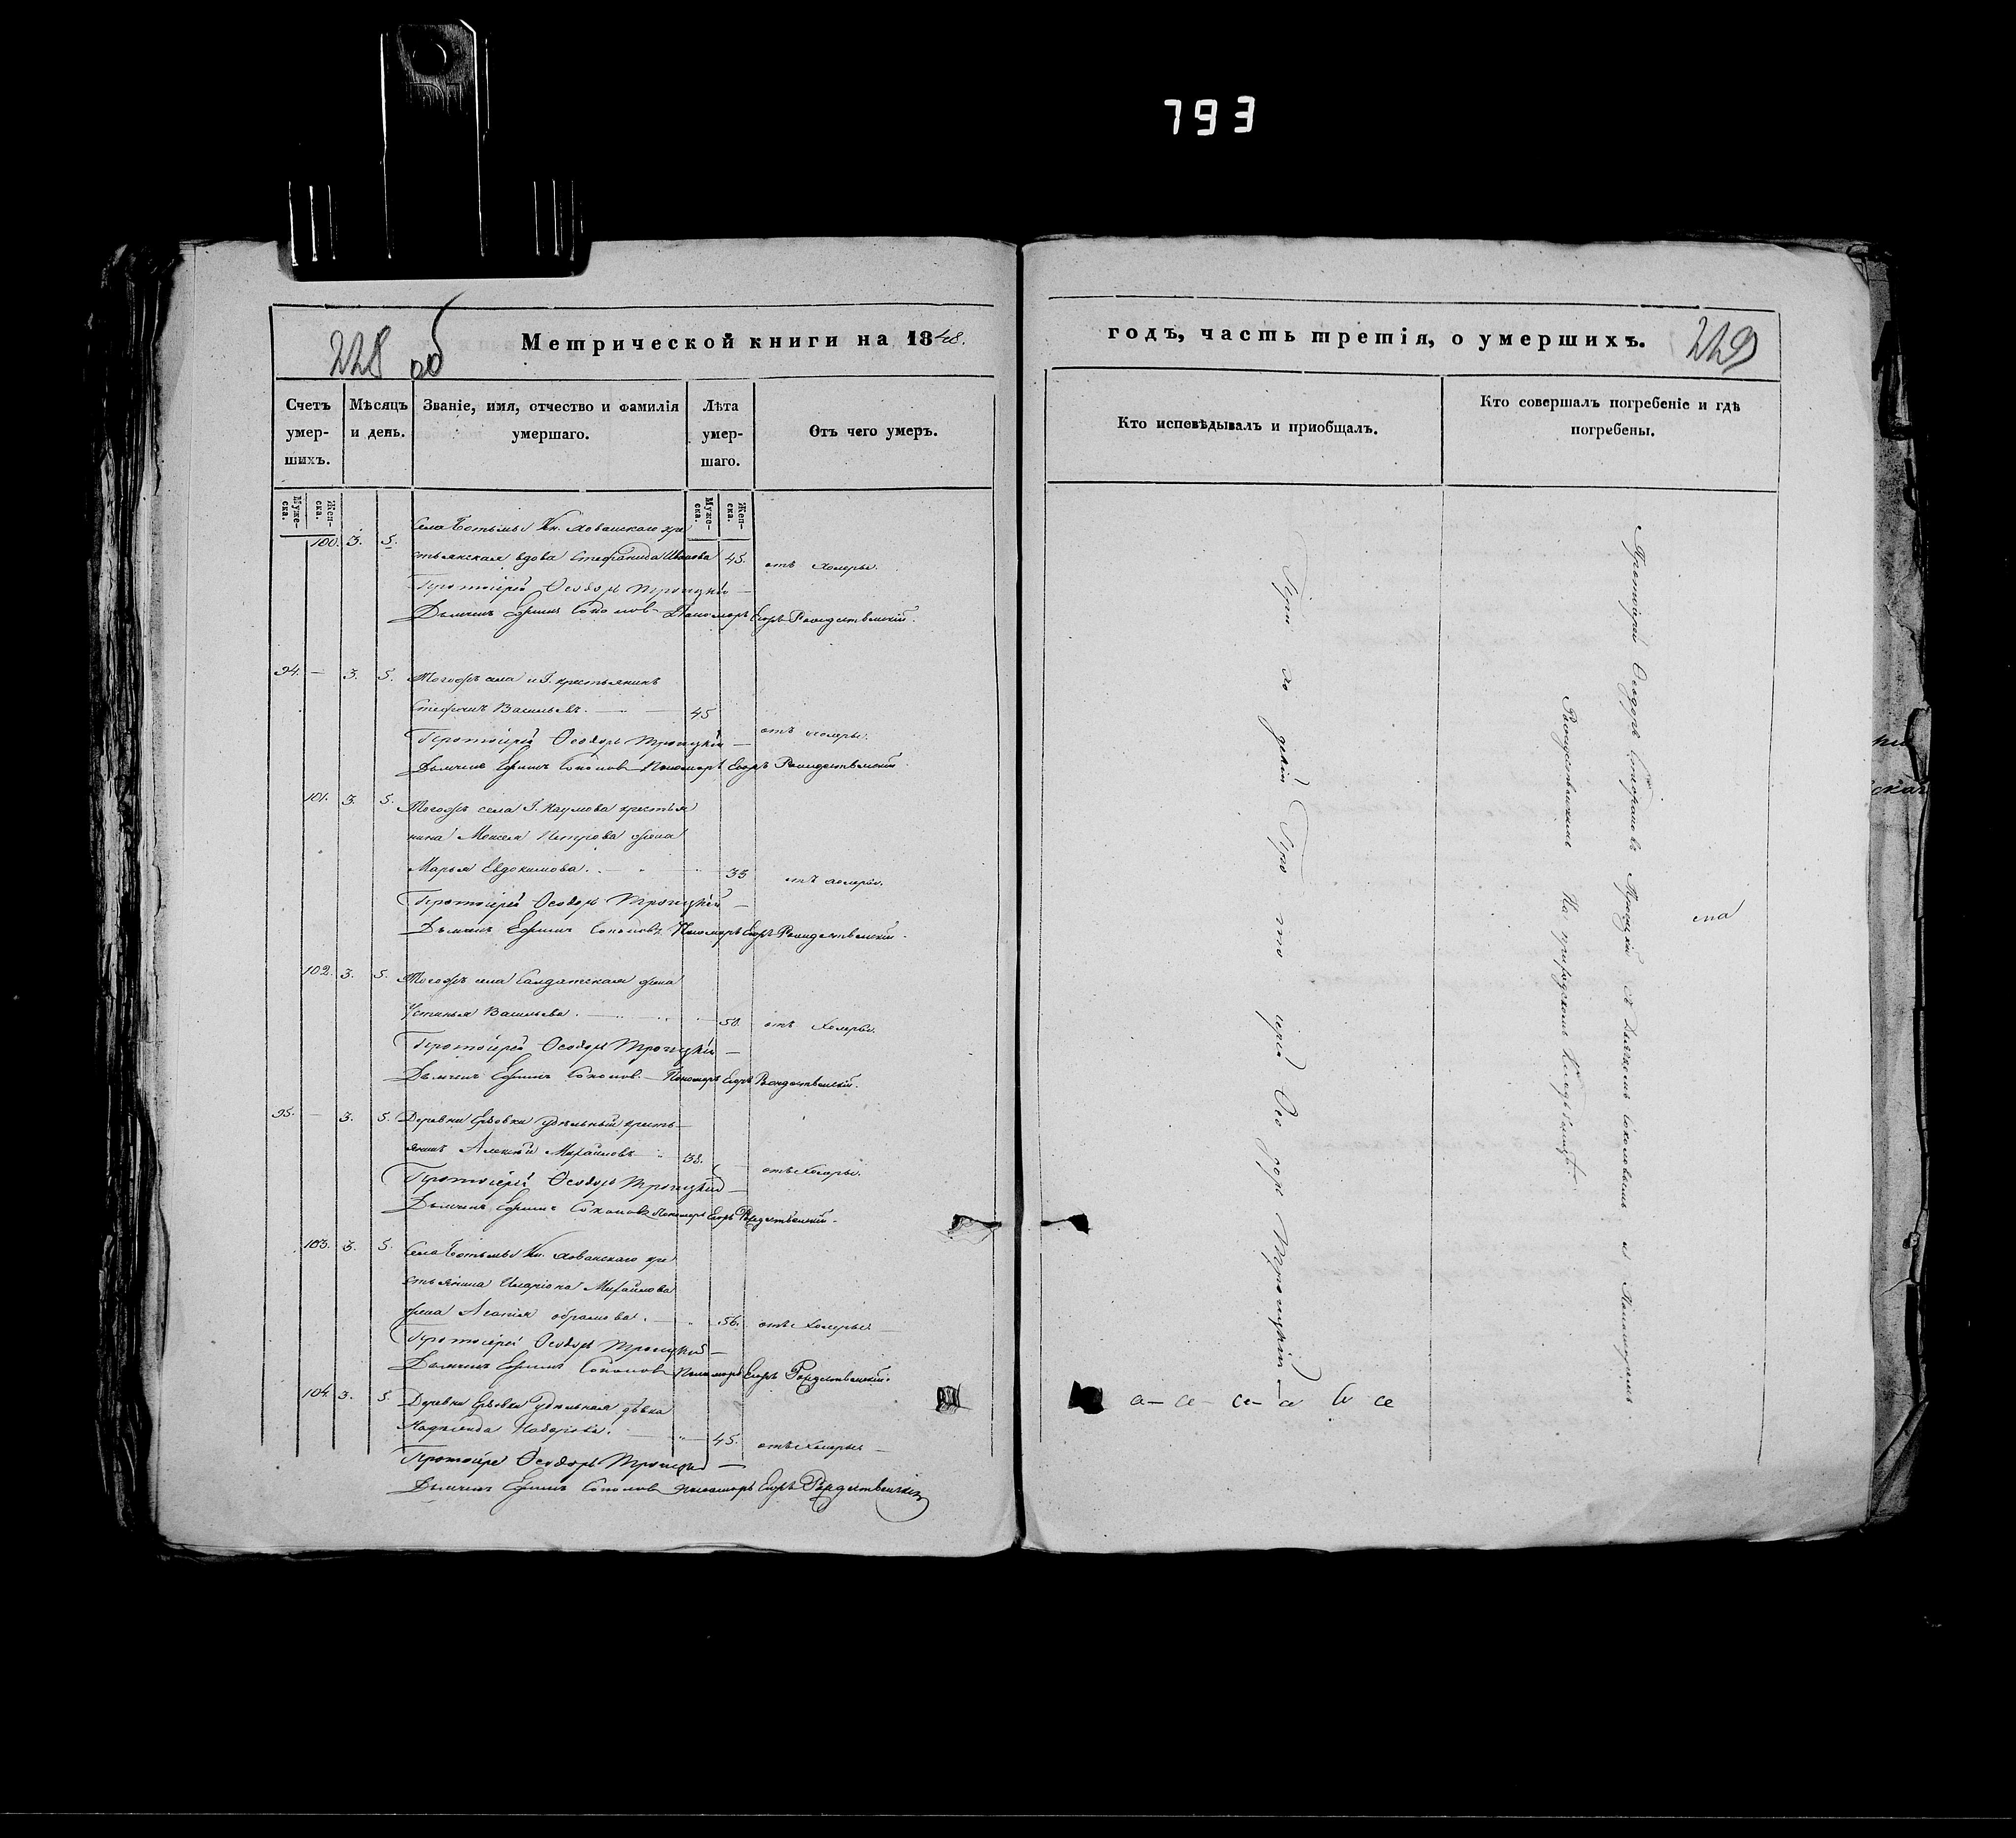 793
228 об
Метрической книги на 1848.
Счетъ умершихъ.
Мѣсяцъ и день.
Званіе, имя, отчество и фамилія умершаго.
Лѣта умершаго.
Отъ чего умеръ.
Мужеска.
Женска.
Мужеска.
Женска.
100. 3. 5. Села Кн. Хованскаго кре
стьянская вдова Стефанида Иванова 45. отъ холеры.
Протоіерей Ѳеодоръ Троицкій
Дьячекъ Ефимъ Соколовъ Пономарь Егоръ Рождественскій.
94. — 3. 5. Тогожъ села и Г. крестьянинъ
Стефанъ Васильевъ. 45 отъ холеры.
Протоіерей Ѳеодоръ Троицкій
Дьячекъ Ефимъ Соколовъ Пономарь Егоръ Рождественскій.
101. 3. 5. Тогожъ села Г. Наумова крестья
нина Моисея Петрова жена
Марья Евдокимова. 35 отъ холеры.
Протоіерей Ѳеодоръ Троицкій
Дьячекъ Ефимъ Соколовъ Пономарь Егоръ Рождественскій.
102. 3. 5. Тогожъ села Салдатская жена
Устинья Васильева. 50. отъ холеры.
Протоіерей Ѳеодоръ Троицкій
Дьячекъ Ефимъ Соколовъ. Пономарь Егоръ Рождественскій.
95. — 3. 5. Деревни удѣльный кресть
янинъ Алексѣй Михайловъ 38. отъ холеры.
Протоіерей Ѳеодоръ Троицкій
Дьячекъ Ефимъ Соколовъ Пономарь Егоръ Рождественскій.
103. 3. 5. Села Кн. Хованскаго кре
стьянина Иларіона Михайлова
жена Агапія 56. отъ холеры
Протоіерей Ѳеодоръ Троицкій
Дьячекъ Ефимъ Соколовъ Пономарь Егоръ Рождественскій.
104. 3. 5. Деревни удѣльная дѣвка
45. отъ холеры
Протоіерей Ѳеодоръ Троицкій
Дьячекъ Ефимъ Соколовъ Пономарь Егоръ Рождественскій
годъ, часть третія, о умершихъ.
229
Кто исповѣдывалъ и приобщалъ.
Кто совершалъ погребеніе и гдѣ погребены.
Протоіерей Ѳеодоръ Троицкій
Протоіерей Ѳеодоръ Троицкій съ Дьячкомъ Соколовымъ и Пономаремъ
Рождественскимъ На приходскомъ Кладбищѣ.